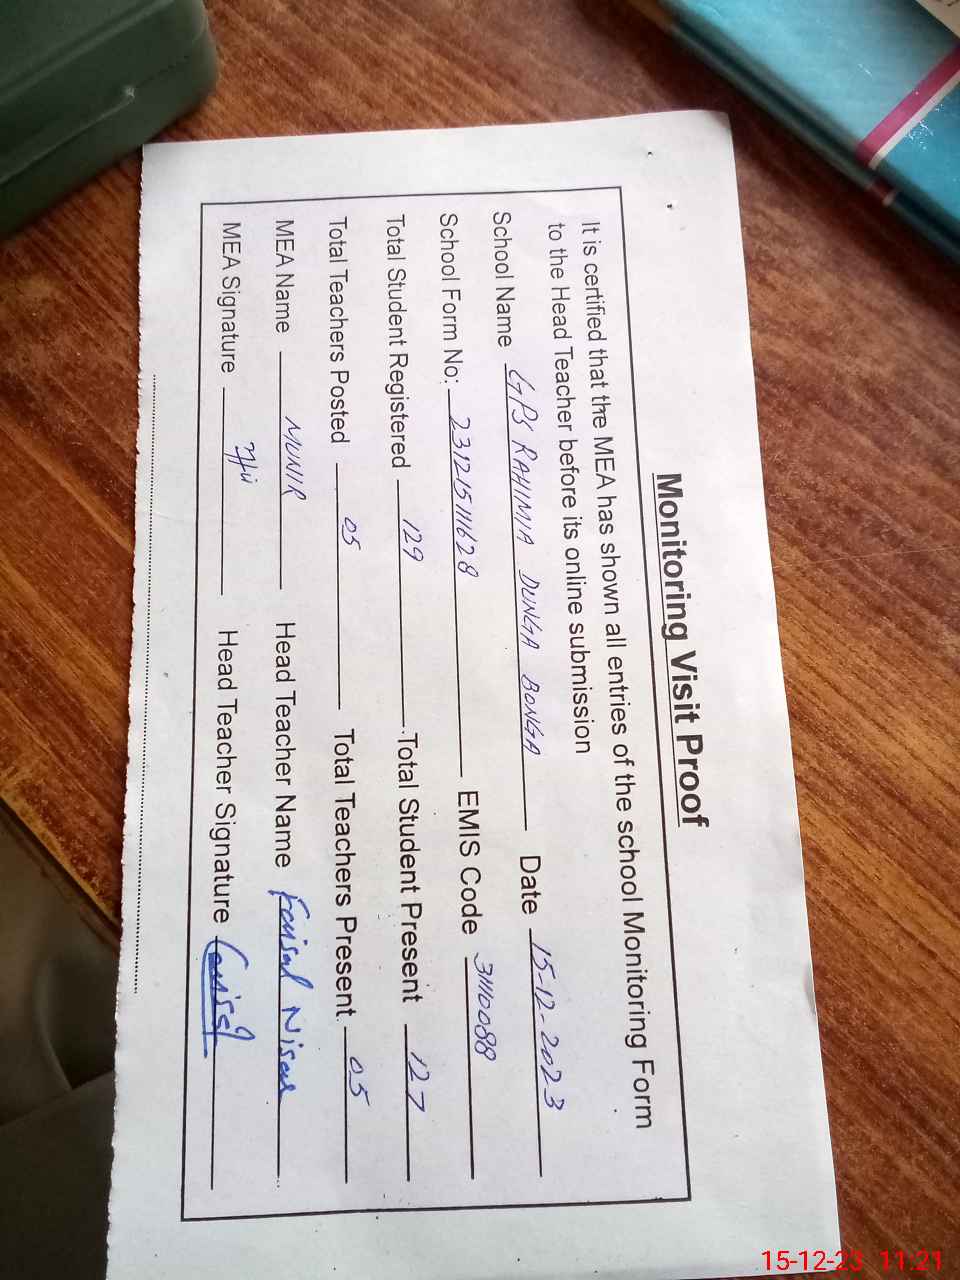 Monitoring Visit Proof
It is certified that the MEA has shown all entries of the school Monitoring Form
to the Head Teacher before its online submission
School Name GPS RAHIMIA DUNGA BONGA Date 15-12-2023
School Form No: 231215111628 EMIS Code 31110088
Total Student Registered 129 Total Student Present 127
Total Teachers Posted 05 Total Teachers Present 05
MEA Name MUNIR Head Teacher Name Faisal Nisar
MEA Signature Head Teacher Signature
15-12-23 11:21